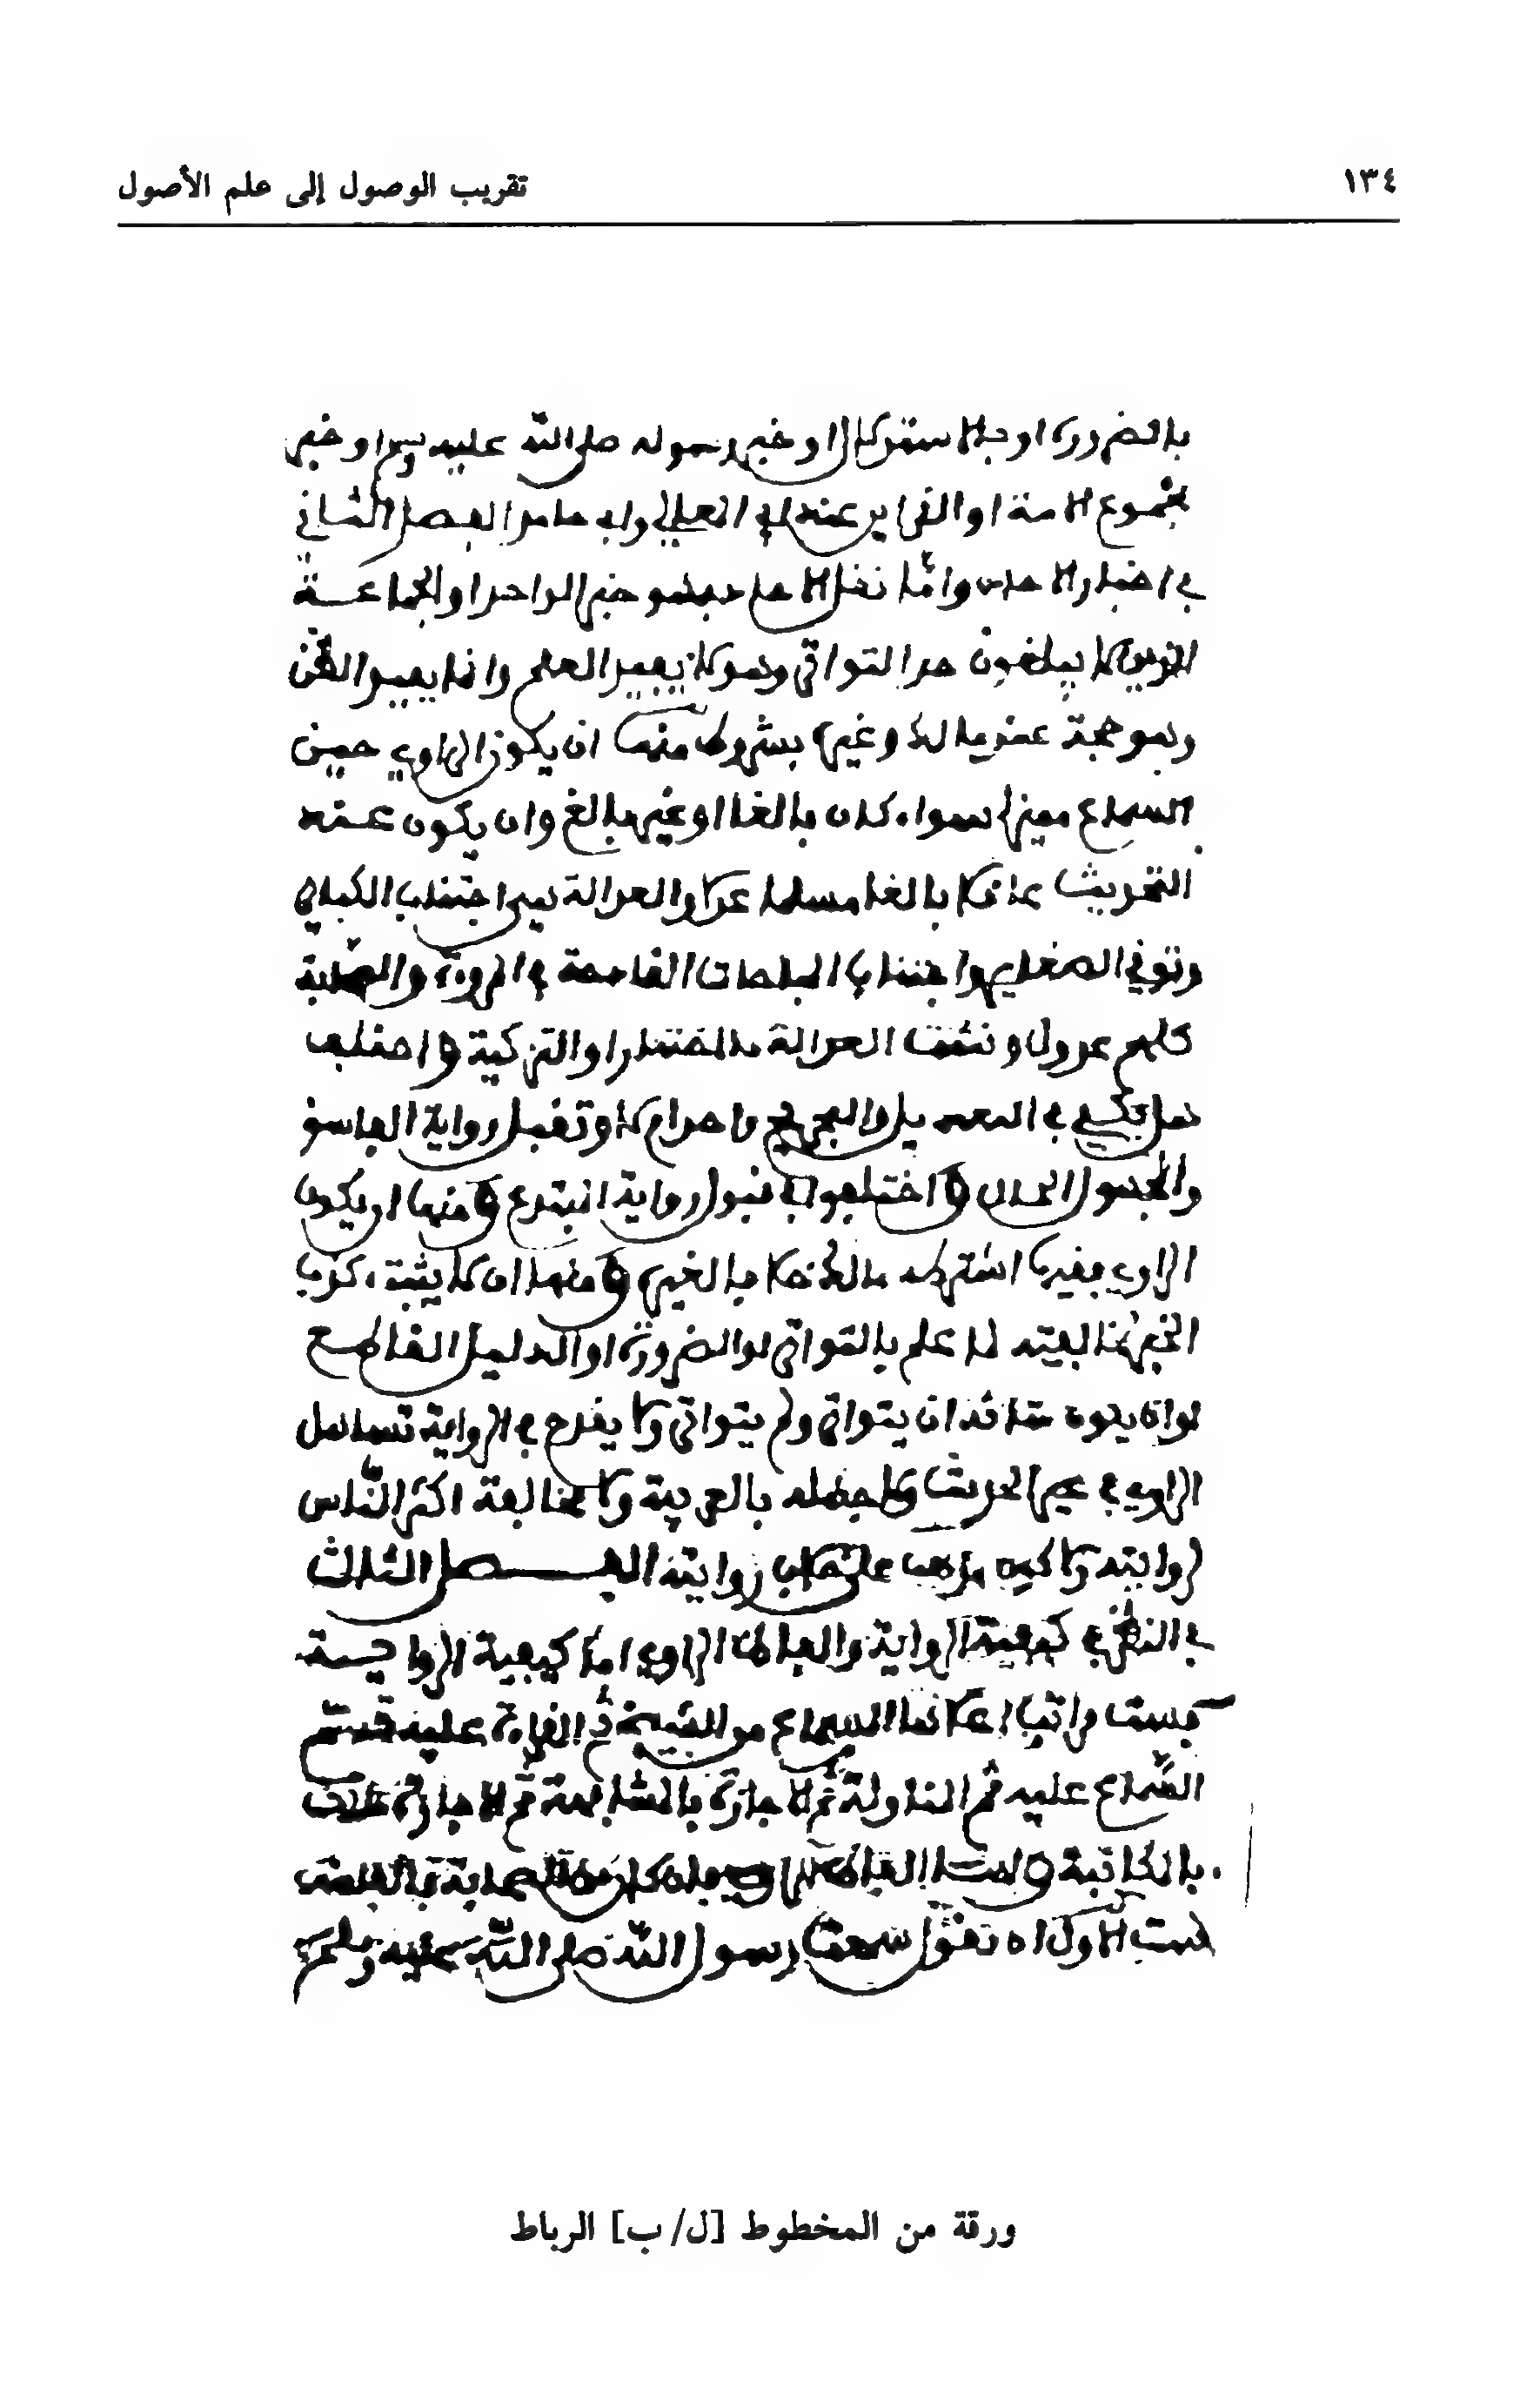 ١٣٤
تقريب الوصول إلى علم الأصول
بالضرورة او بالاستدلال او خبر رسوله صلى الله عليه وسلم او خبر
مجموع الامة او القراين عند ابي المعالي وابي حامد الفصل الثاني
في اخبار الاحاد واما نقل الاحاد فهو خبر الواحد او الجماعة
الذين لا يبلغون حد التواتر وهو لا يفيد العلم وانما يفيد الظن
وهو حجة عند مالك وغيره بشروط منها ان يكون الراوي حين
السماع مميزا سواء كان بالغا او غير بالغ وان يكون عند
التحديث عاقلا بالغا مسلما عدلا والعدالة هي اجتناب الكبائر
وتوفي الصغاير واجتناب المباحات القادحة في المروءة والصحابة
كلهم عدول وتثبت العدالة بالاختبار او التزكية واختلف
هل يكفي في التعديل والتجريح واحد ام لا وتقبل رواية الفاسق
والمجهول الحال واختلفوا في قبول رواية المبتدع ومنها ان يكون
الراوي فقيها اشترطه مالك خلافا لغيره ومنها ان لا يثبت كذب
الخبر لمخالفته لما علم بالتواتر او الضرورة او الدليل القاطع
او ان يكون شانه ان يتواتر ولم يتواتر ولا يقدح في الرواية تساهل
الراوي في غير الحديث ولا جهله بالعربية ولا مخالفة اكثر الناس
لروايته ولا كون مذهبه على خلاف روايته الفصل الثالث
في النظر في كيفية الرواية والفاظ الراوي اما كيفية الرواية
فست مراتب اعلاها السماع من الشيخ ثم القراءة عليه ثم
السماع عليه ثم المناولة ثم الاجازة بالمشافهة ثم الاجازة
بالمكاتبة واما الفاظ
الاول ان تقول سمعت رسول الله صلى الله عليه وسلم
ورقة من المخطوط [ل/ب] الرباط